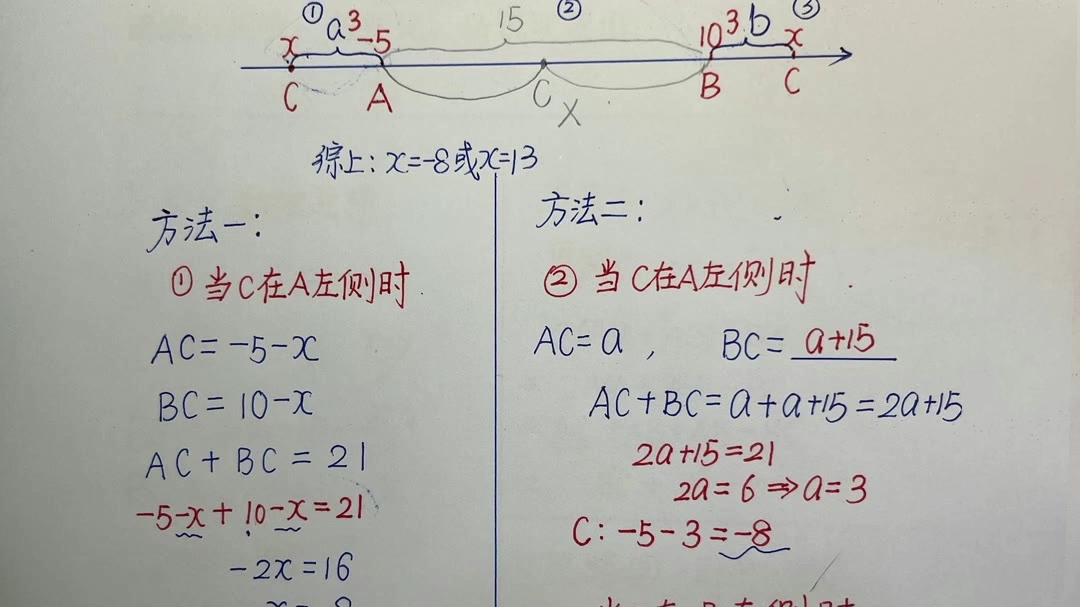 ① a 3 -5 15 ② 10 3 b ③
x x
C A C B C
X
综上: x=-8或x=13
方法一:
① 当C在A左侧时
AC=-5-x
BC=10-x
AC+BC=21
-5-x+10-x=21
-2x=16
方法二:
② 当C在A左侧时.
AC=a, BC=a+15
AC+BC=a+a+15=2a+15
2a+15=21
2a=6⇒a=3
C:-5-3=-8